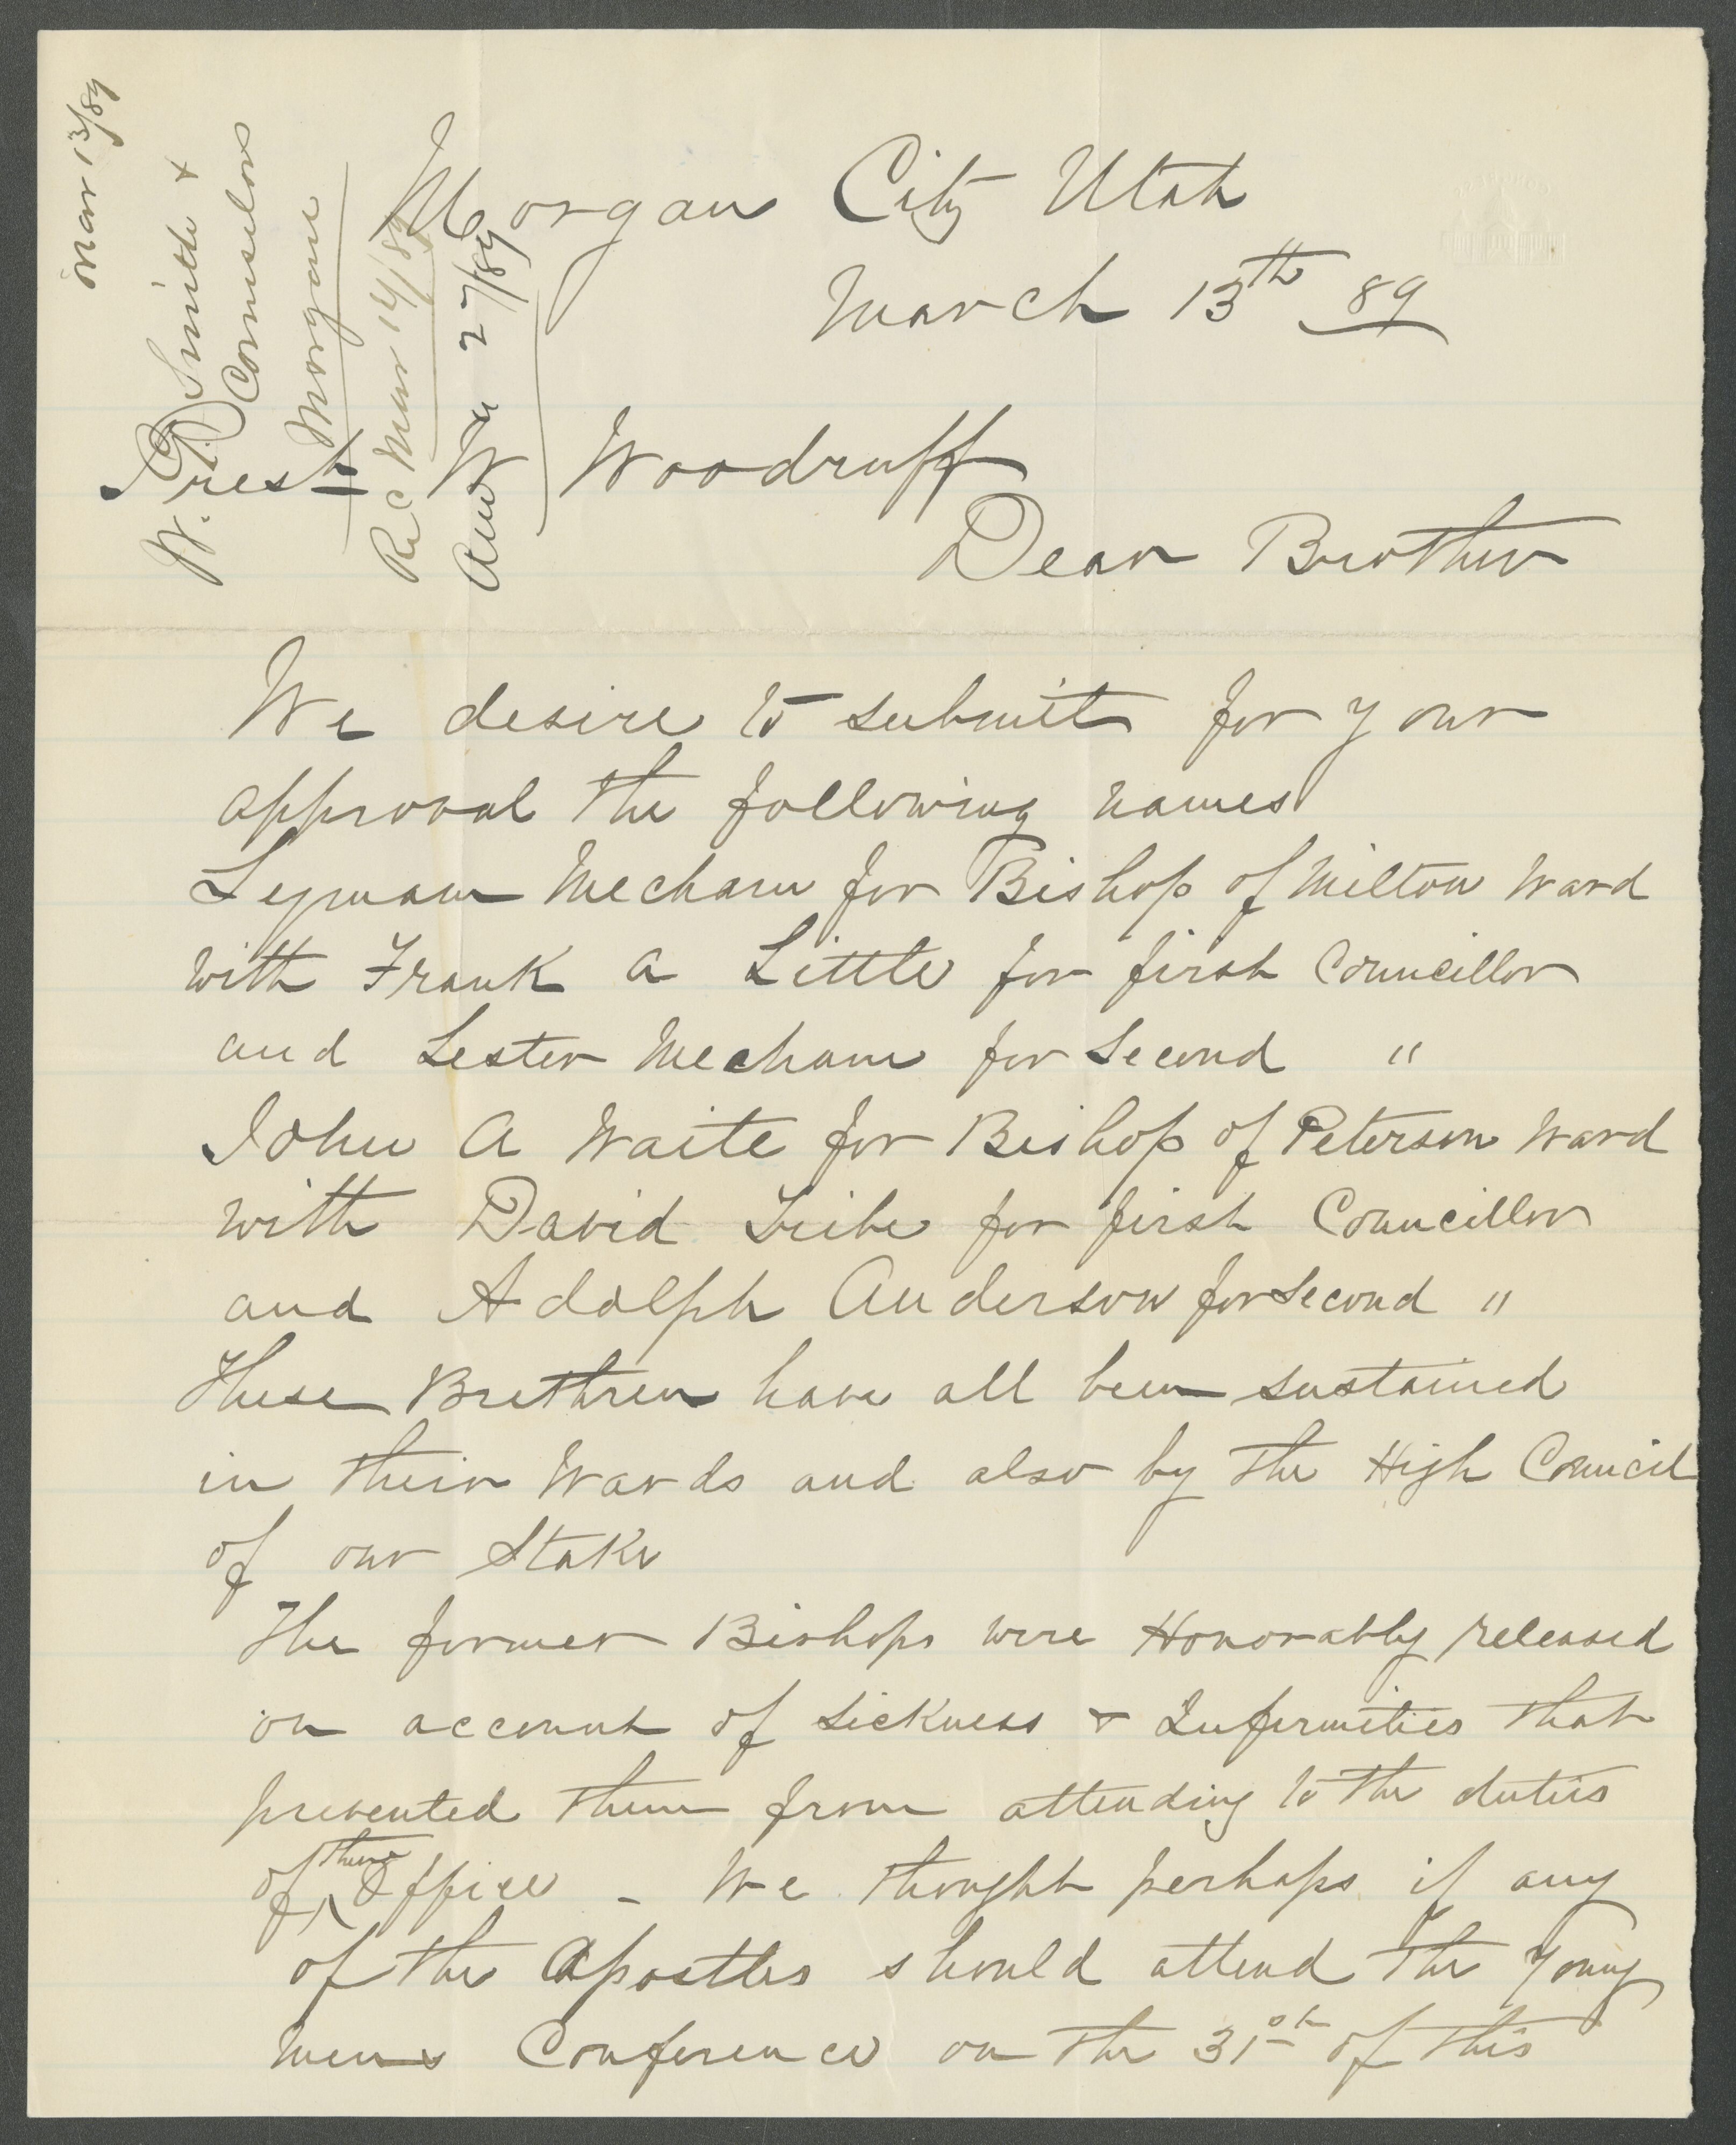 Mar 13/89
W. R. Smith &
Counselors
Morgan
Rec Mar 14/89
Answ 27/89
Morgan City Utah
March 13th 89
Prest W Woodruff
Dear Brother
We desire to submit for your
approval the following names
Lyman Mecham for Bishop of Milton Ward
with Frank A Little for first Councillor
and Lester Mecham for Second "
John A Waite for Bishop of Peterson Ward
with David Tribe for first Councillor
and Adolph Anderson for Second "
These Brethren have all been sustained
in their Wards and also by the High Council
of our Stake
The former Bishops were Honorably released
on account of sickness & Infirmities that
prevented them from attending to the duties
of their Office - We thought perhaps if any
of the Apostles should attend the Young
mens Conference on the 31st of this